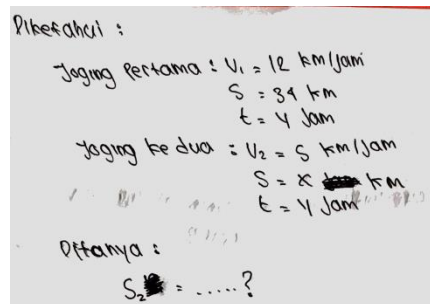 Diketahui :
Joging Pertama : V₁ = 12 km/jam
S = 34 km
t = y Jam
Joging kedua : V₂ = 5 km/Jam
S = x km
t = y Jam
Ditanya :
S₂ = .....?